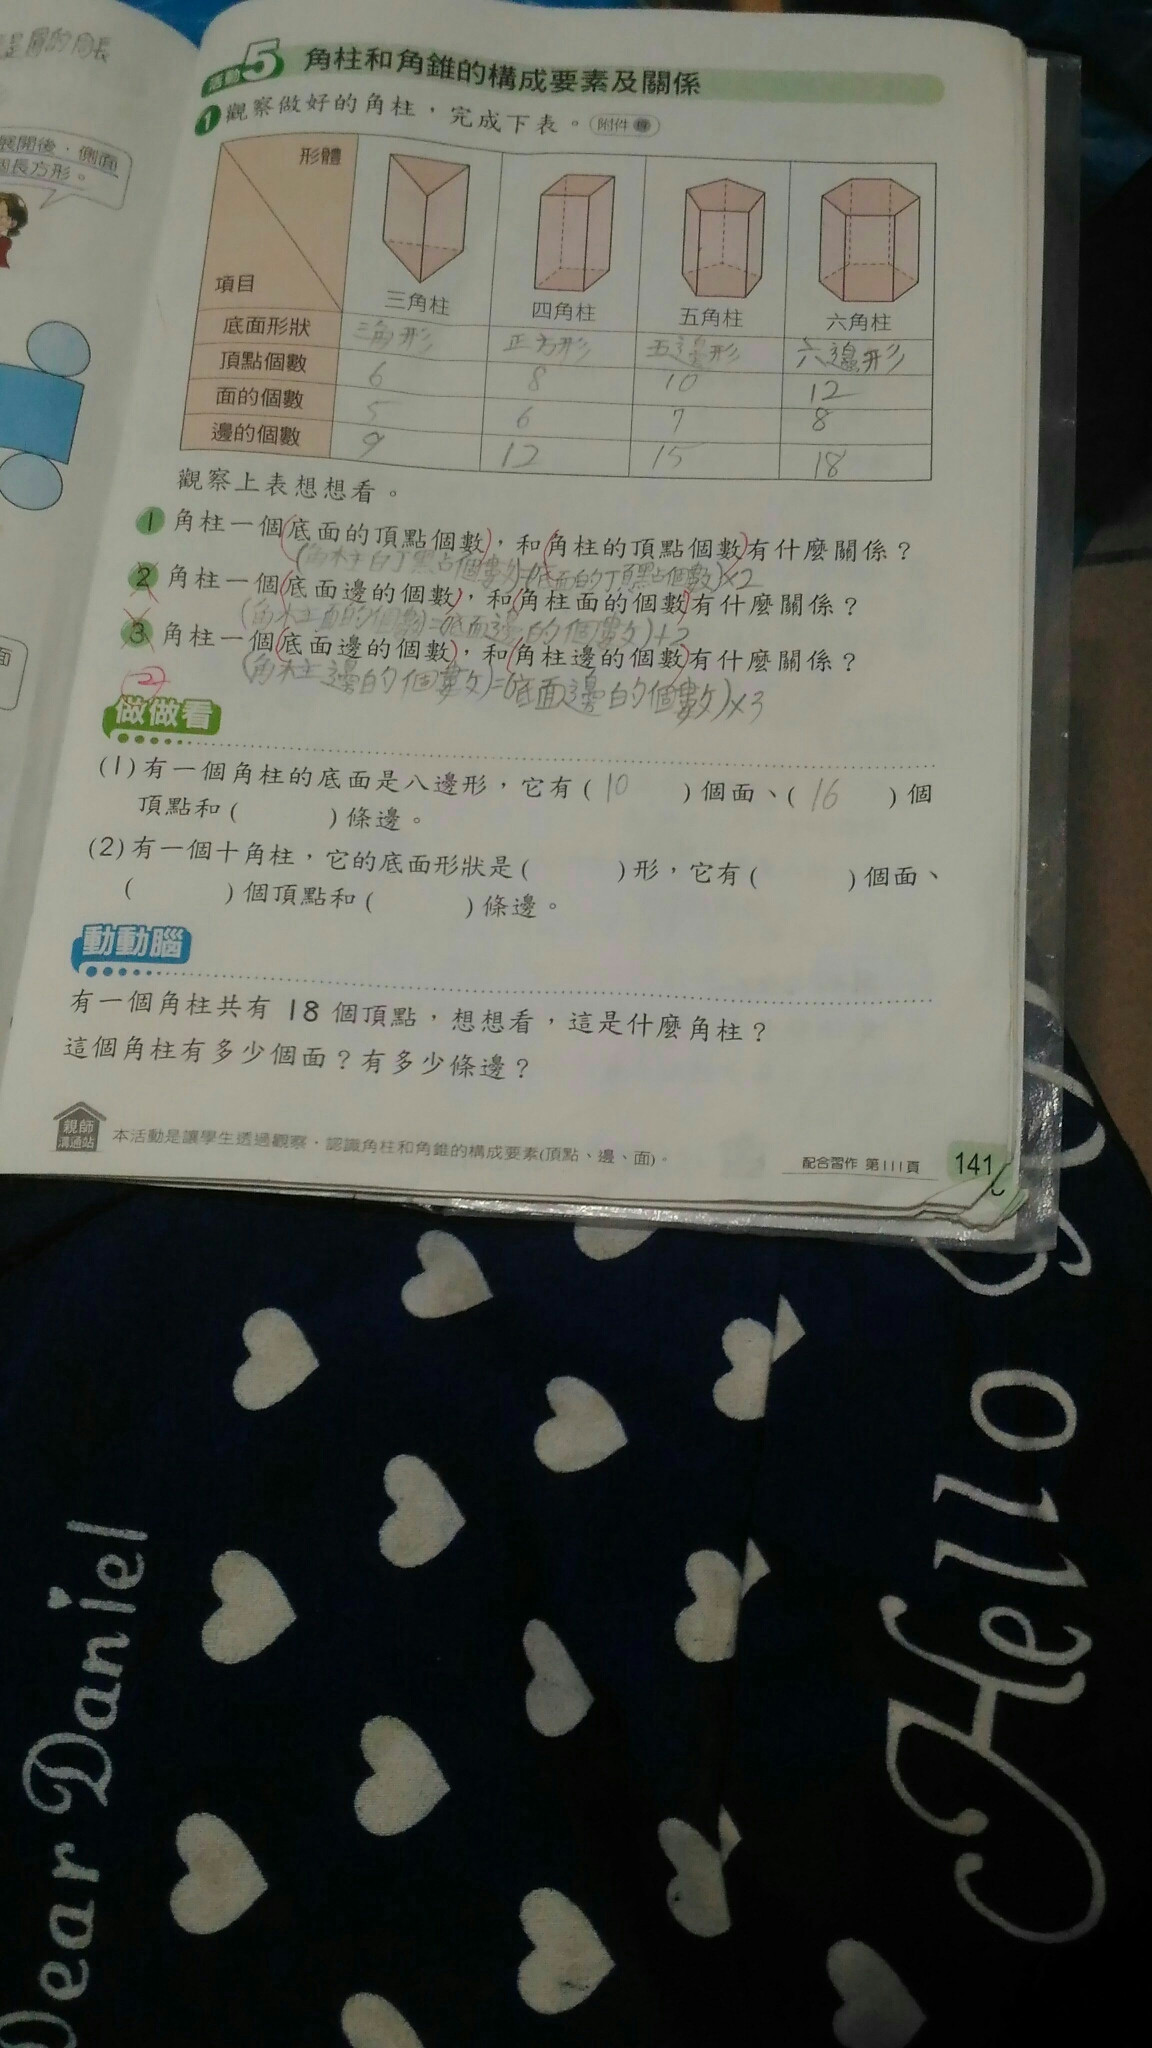 是圓的周長
展開後,側面
個長方形。
面
活動5 角柱和角錐的構成要素及關係
1 觀察做好的角柱,完成下表。附件
形體
項目
三角柱 四角柱 五角柱 六角柱
底面形狀 三角形 正方形 五邊形 六邊形
頂點個數 6 8 10 12
面的個數 5 6 7 8
邊的個數 9 12 15 18
觀察上表想想看。
1 角柱一個(底面的頂點個數),和(角柱的頂點個數)有什麼關係?
(角柱的頂點個數)=(底面的頂點個數)×2
2 角柱一個(底面邊的個數),和(角柱面的個數)有什麼關係?
(角柱面的個數)=(底面邊的個數)+2
3 角柱一個(底面邊的個數),和(角柱邊的個數)有什麼關係?
2
(角柱邊的個數)=(底面邊的個數)×3
做做看
(1)有一個角柱的底面是八邊形,它有( 10 )個面、( 16 )個
頂點和( )條邊。
(2)有一個十角柱,它的底面形狀是( )形,它有( )個面、
( )個頂點和( )條邊。
動動腦
有一個角柱共有 18 個頂點,想想看,這是什麼角柱?
這個角柱有多少個面?有多少條邊?
親師
溝通站
本活動是讓學生透過觀察,認識角柱和角錐的構成要素(頂點、邊、面)。
配合習作 第111頁
141
Hello
Dear Daniel